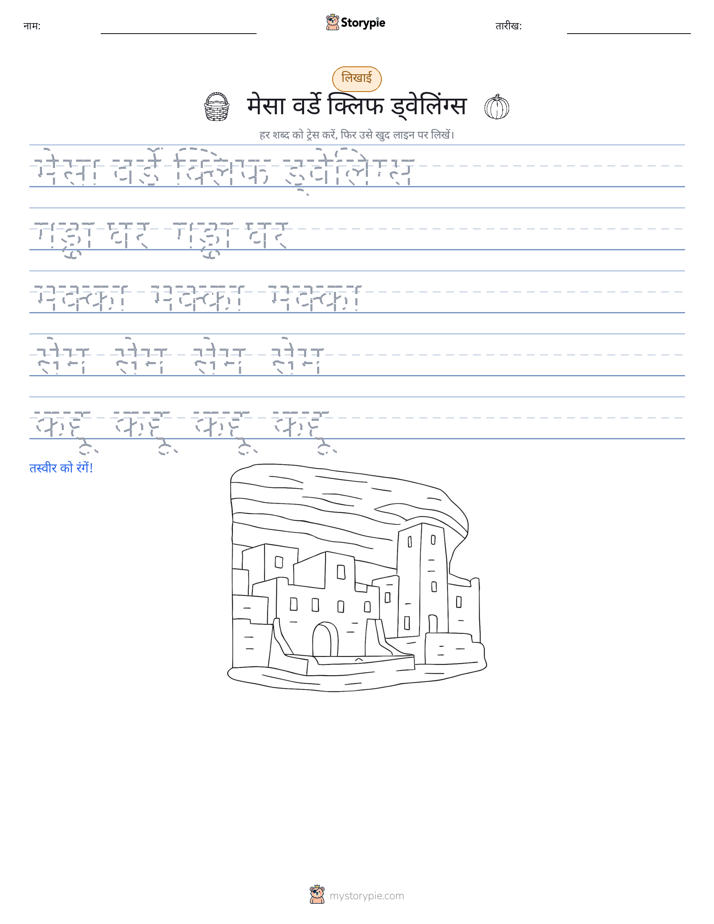 नाम:
Storypie
तारीख:
लिखाई
मेसा वर्डे क्लिफ ड्वेलिंग्स
हर शब्द को ट्रेस करें, फिर उसे खुद लाइन पर लिखें।
मेसा वर्डे क्लिफ ड्वेलिंग्स
गड्ढा घर गड्ढा घर
मक्का मक्का मक्का
सेम सेम सेम सेम
कद्दू कद्दू कद्दू कद्दू
तस्वीर को रंगें!
mystorypie.com